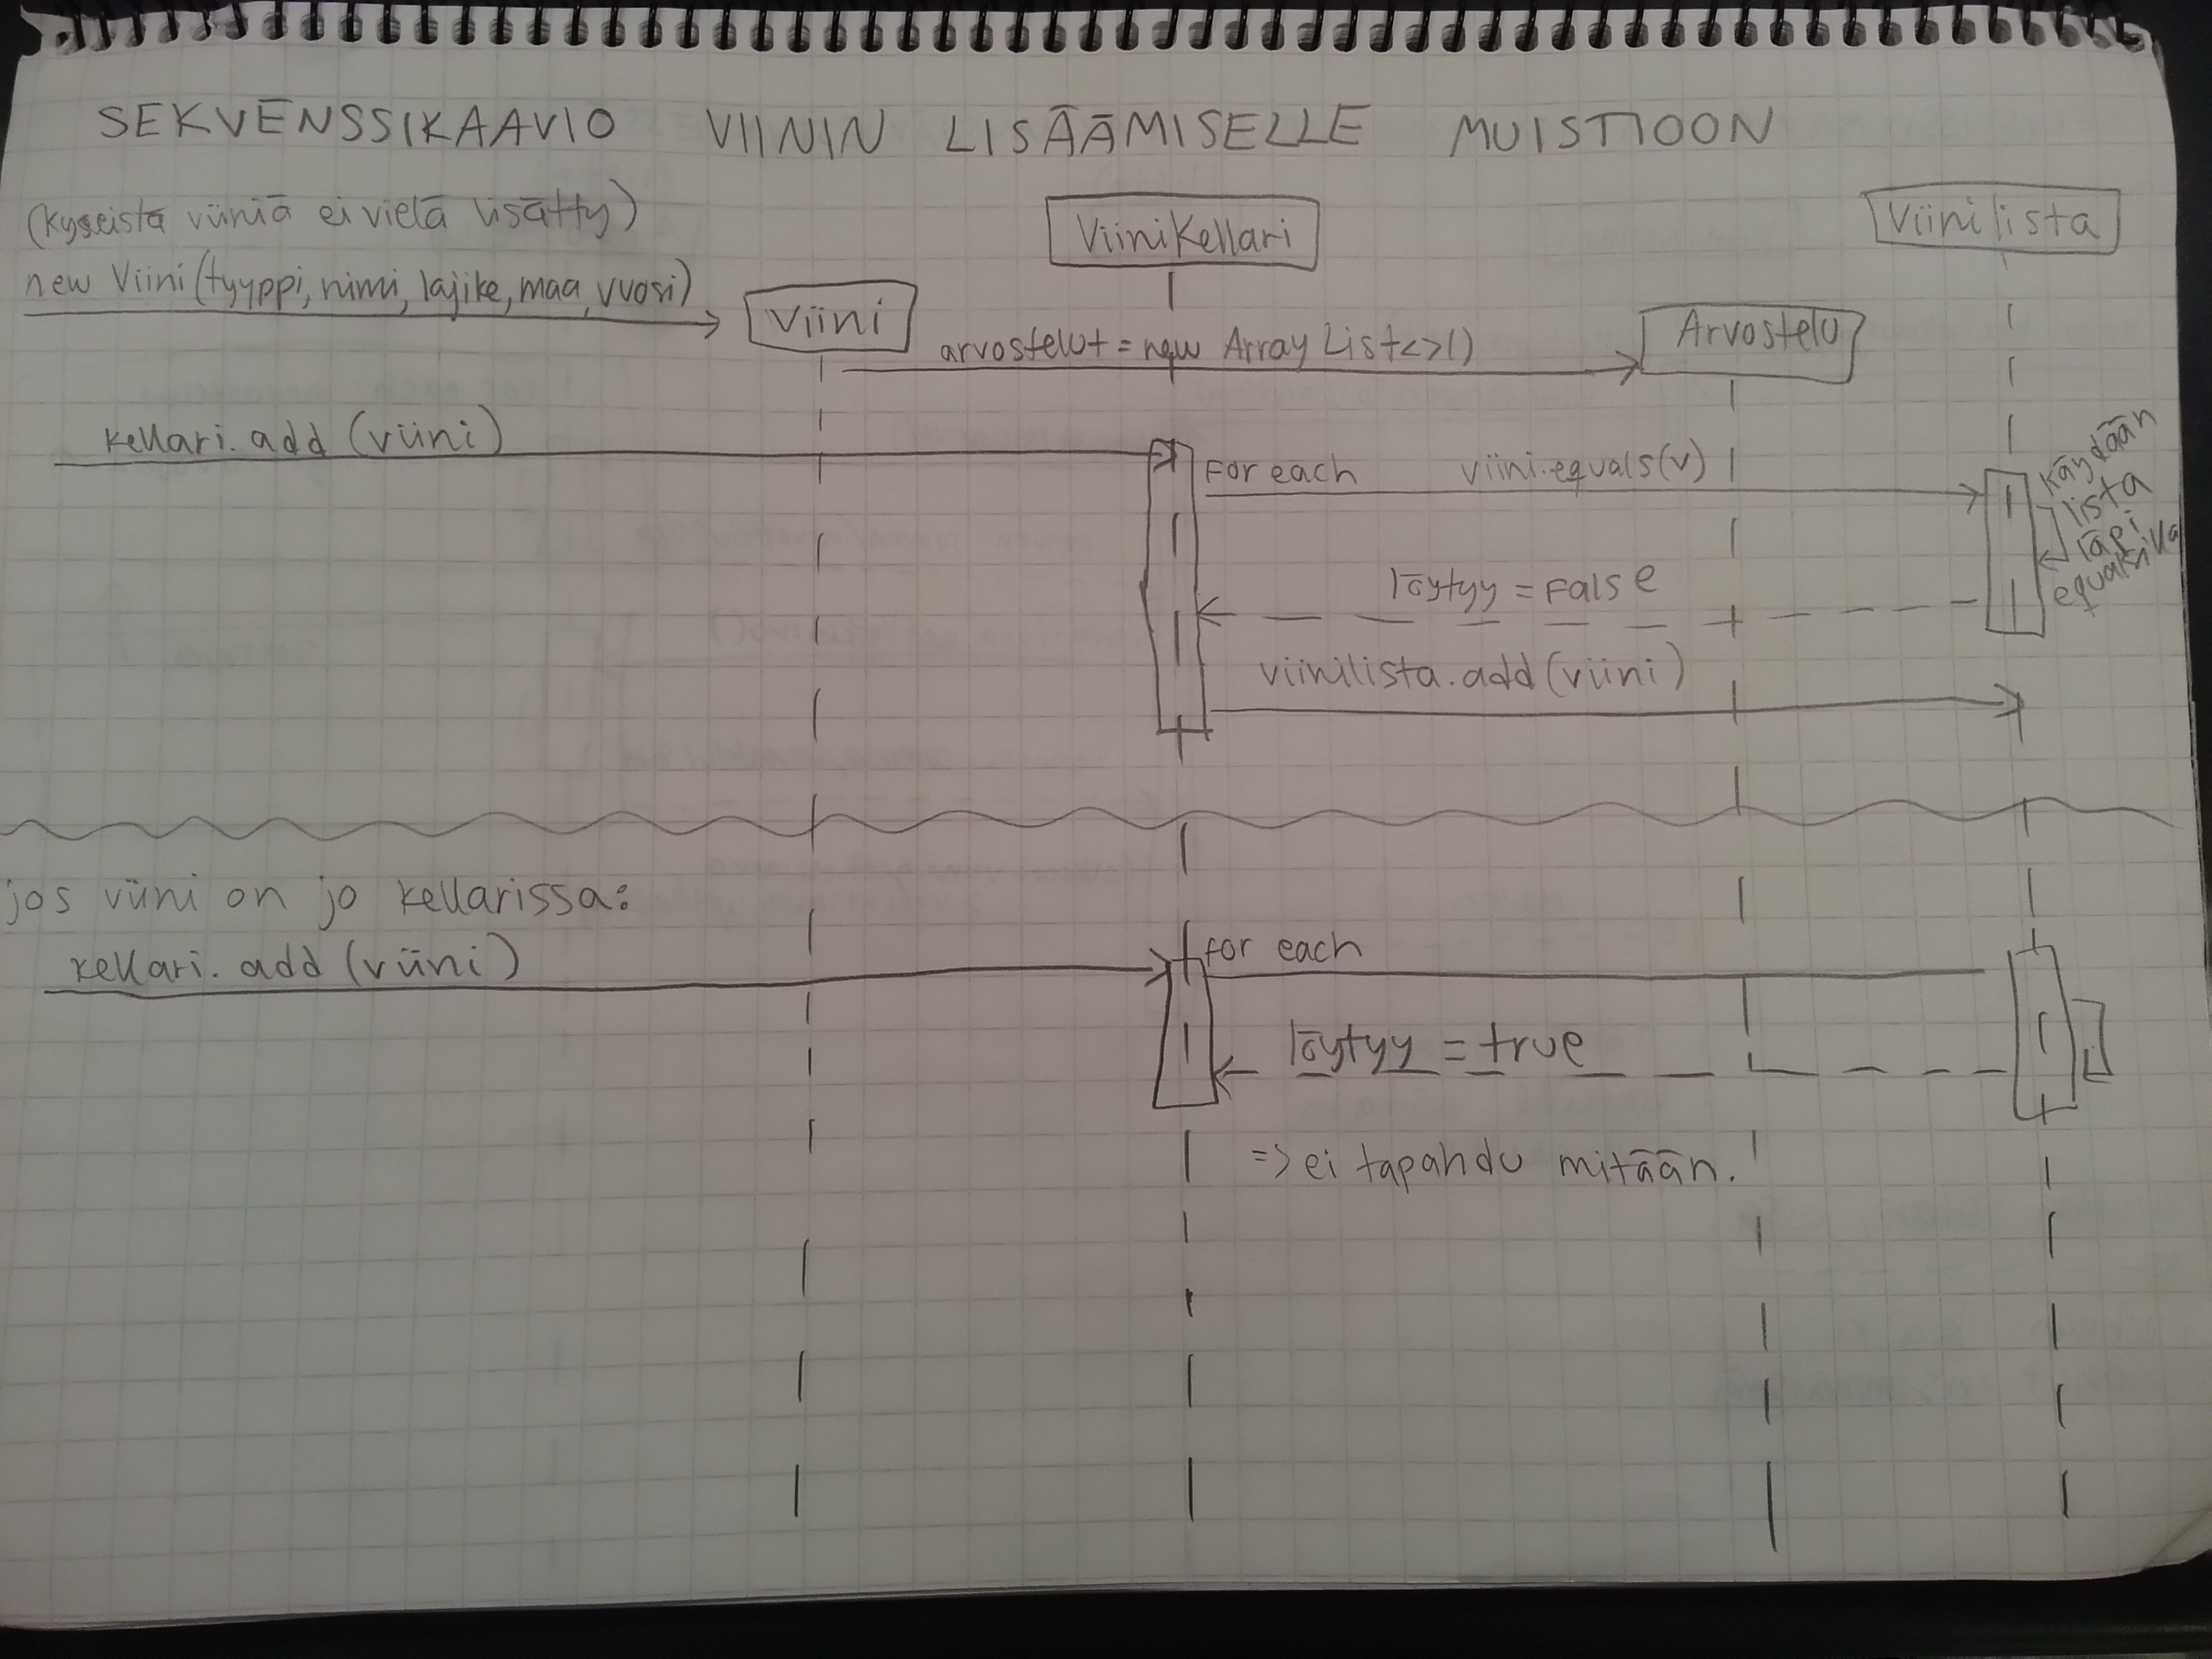 SEKVENSSIKAAVIO VIININ LISÄÄMISELLE MUISTIOON
(kyseistä viiniä ei vielä lisätty)
ViiniKellari
Viinilista
new Viini(tyyppi, nimi, lajike, maa, vuosi)
Viini
arvostelut = new ArrayList<>()
Arvostelu
kellari.add(viini)
For each viini.equals(v)
käydään
lista
läpi
equalsilla
löytyy = False
viinilista.add(viini)
jos viini on jo kellarissa:
kellari.add(viini)
for each
löytyy = true
=> ei tapahdu mitään.